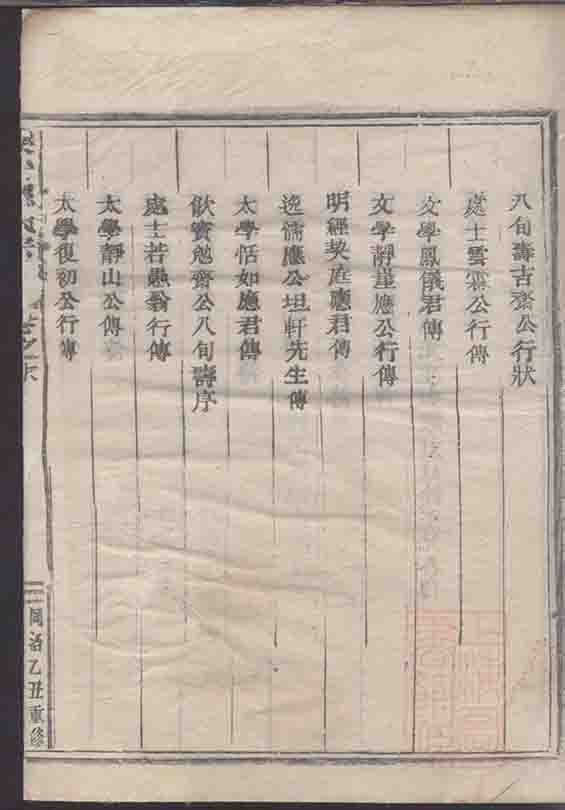 八旬壽古齋公行狀
處士雲霖公行傳
文學鳳儀君傳
文學靜崖應公行傳
明經契庭應君傳
逸儒應公坦軒先生傳
太學恬如應君傳
飲賓勉齋公八旬壽序
處士若愚翁行傳
太學靜山公傳
太學復初公行傳
乙丑重修